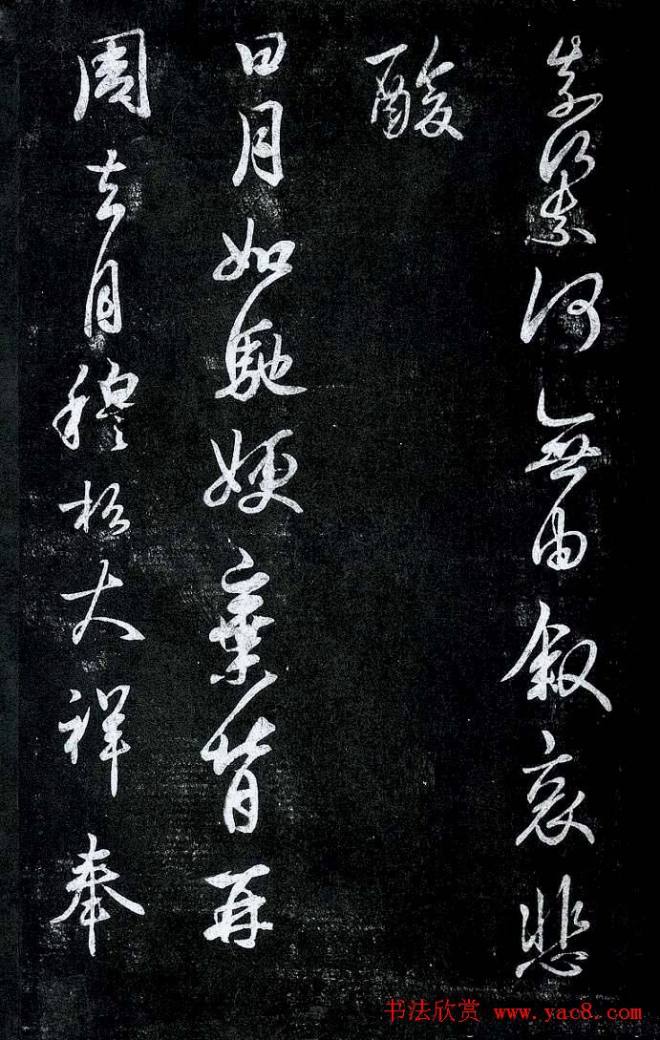 奈何奈何無由敘哀悲
酸
日月如馳嫂棄背再
周去月穆松大祥奉
书法欣赏 www.yac8.com